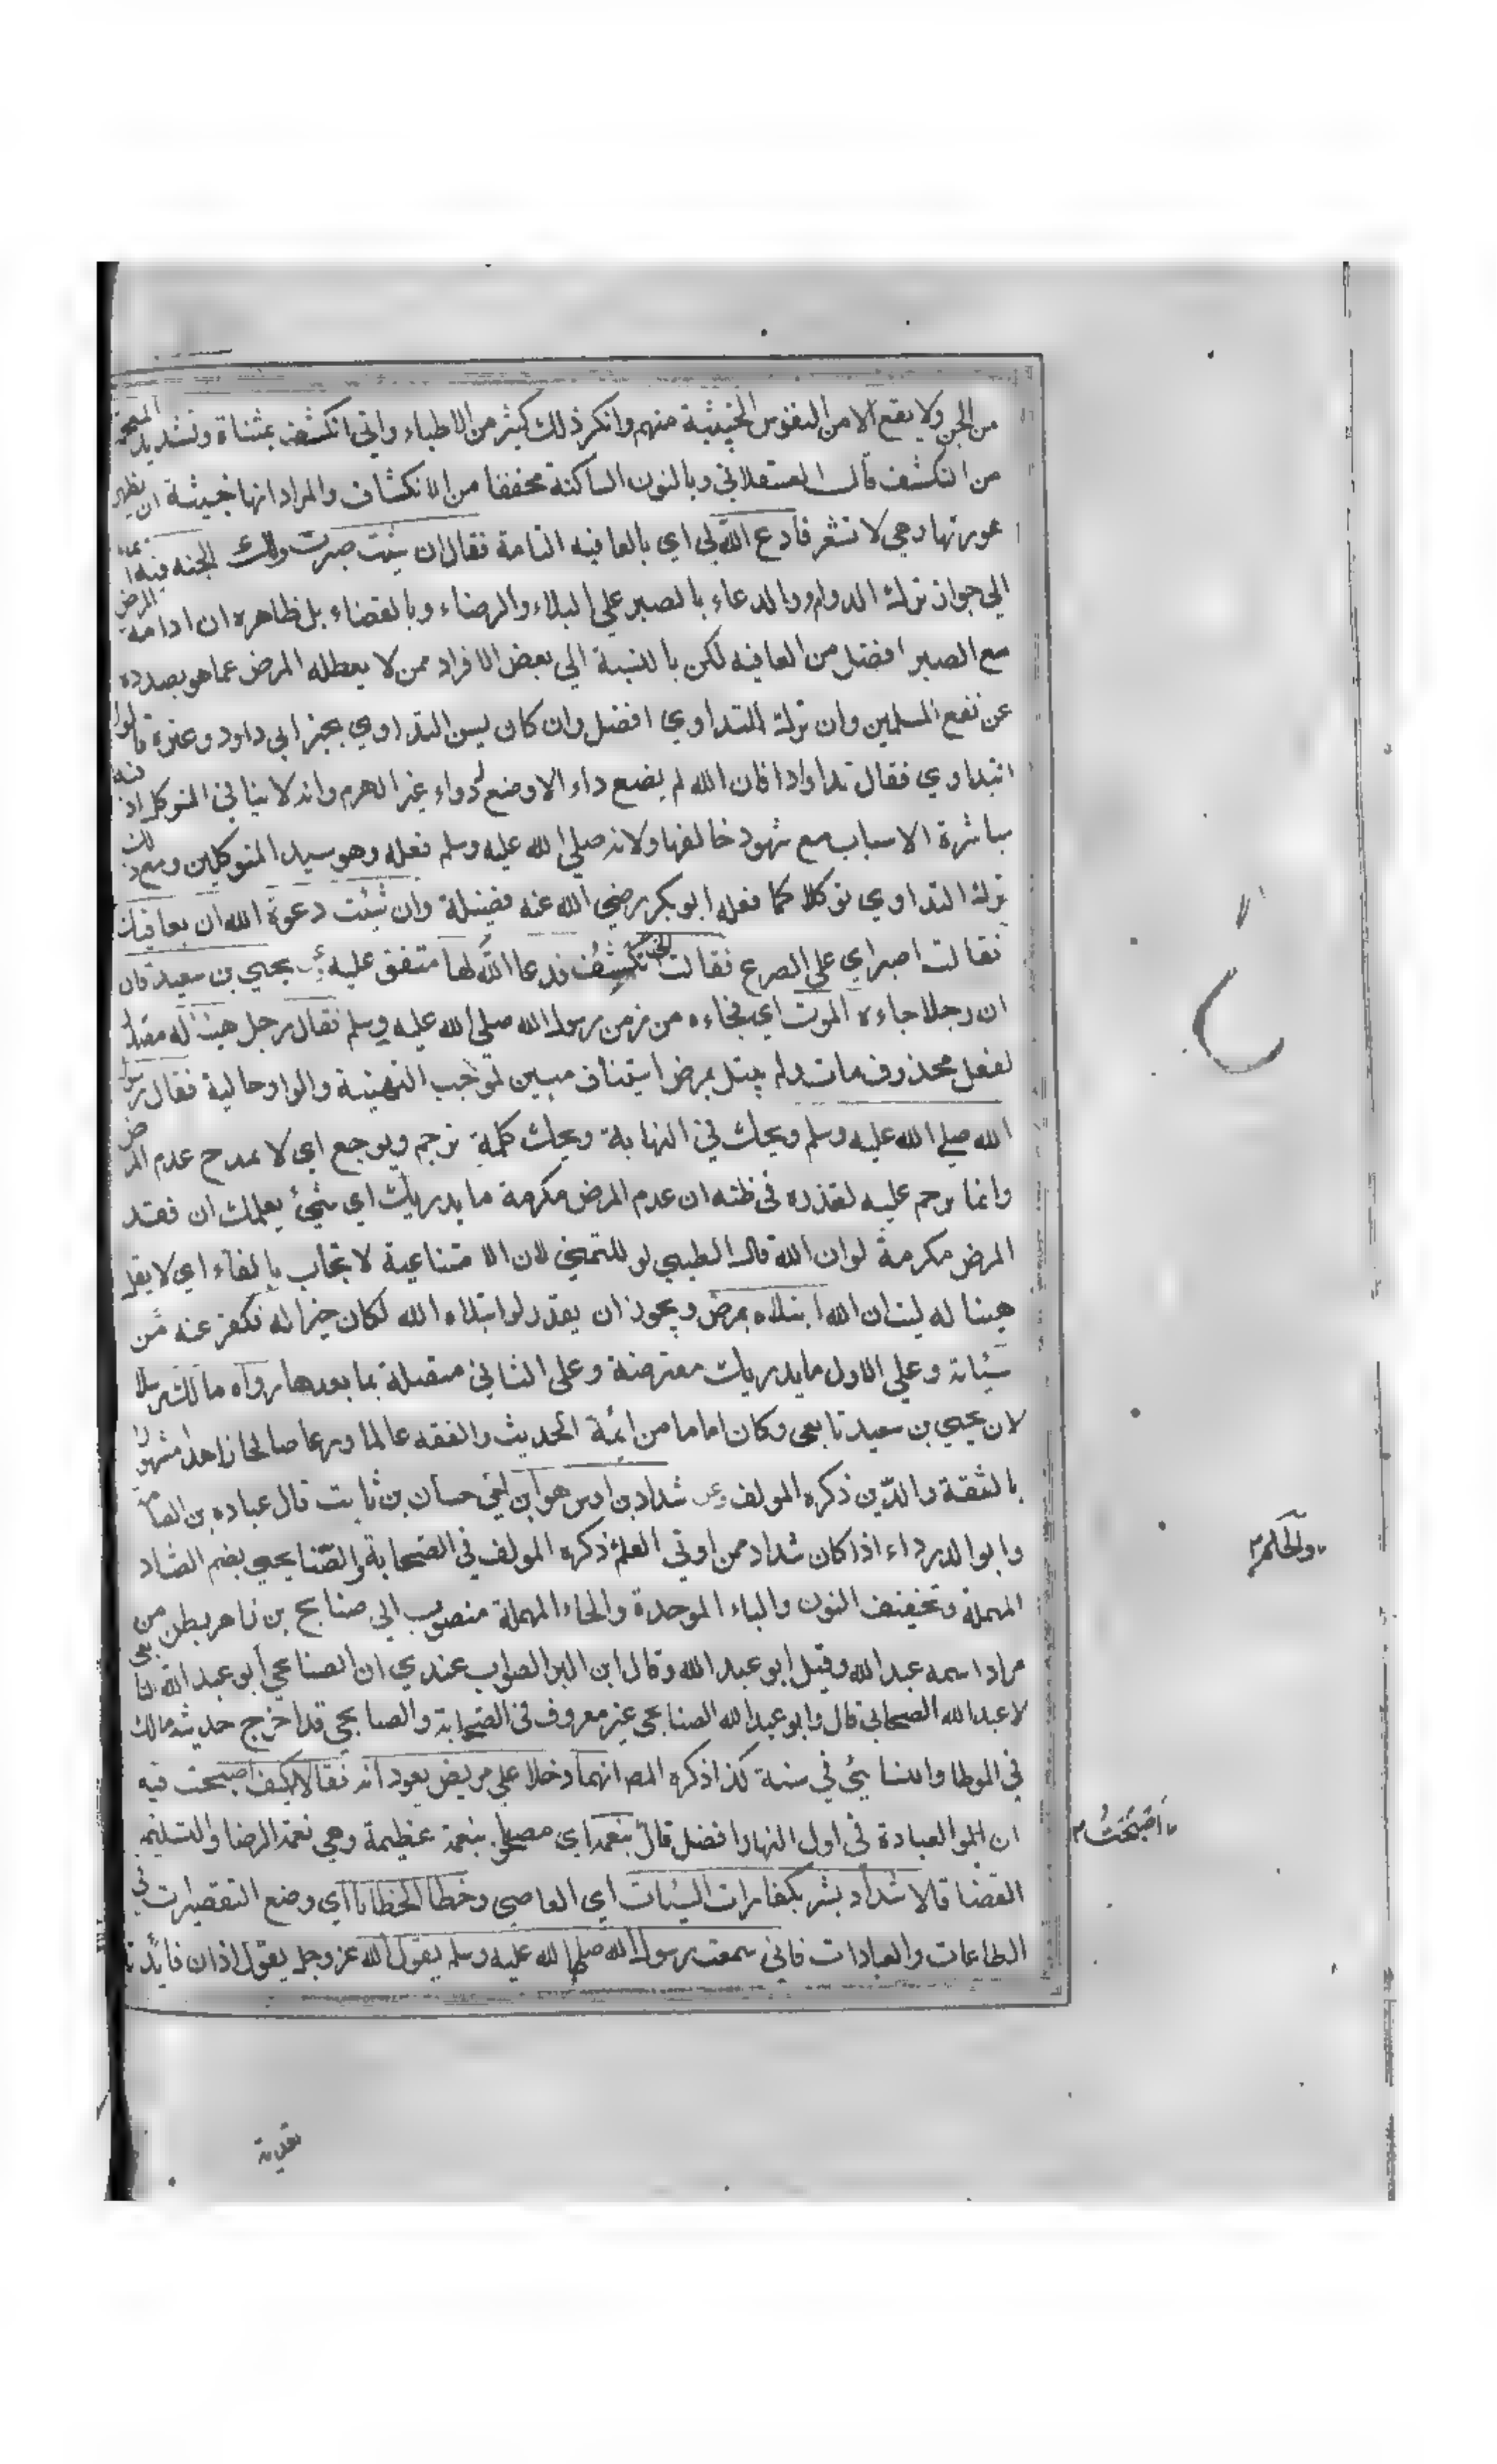 من الجن ولا يقع الا من النفوس الخبيثة منهم وانكر ذلك كثير من الاطباء واني اتكشف بمثناة وتشديد المعجمة
من التكشف قال العسقلاني وبالنون الساكنة مخففا من الانكشاف والمراد انها خشيت ان يظهر
عورتها وهي لا تشعر فادع الله لي اي بالعافيه التامة فقال ان شئت صبرت ولك الجنه فيه
الي جواز ترك الدواء والدعاء بالصبر علي البلاء والرضاء وبالقضاء بل ظاهره ان ادامة المرض
مع الصبر افضل من العافيه لكن بالنسبة الي بعض الافراد ممن لا يعطله المرض عما هو بصدده
عن نفع المسلمين وان ترك التداوي افضل وان كان يسن التداوي بخبر ابي داود وغيره قالوا
انتداوي فقال تداووا فان الله لم يضع داء الا وضع له دواء غير الهرم وانه لا ينافي التوكل اذ فيه
مباشرة الاسباب مع شهود خالقها ولانه صلي الله عليه وسلم فعله وهو سيد المتوكلين ومع ذلك
ترك التداوي توكلا كما فعله ابو بكر رضي الله عنه فضيلة وان شئت دعوة الله ان يعافيك
فقالت اصبر اي علي الصرع فقالت اني اتكشف فدعا الله لها متفق عليه يحيي بن سعيد قال
ان رجلا جاءه الموت اي فجاءه من زمن رسول الله صلي الله عليه وسلم فقال رجل هنيئا له مصدر
لفعل محذوف مات ولم يبتل بمرض استيناف مبين لموجب التهنية والواو حالية فقال رسول
الله صلي الله عليه وسلم ويحك في النهاية ويحك كلمة ترحم وتوجع اي لا تمدح عدم المرض
وانما ترحم عليه لعذره في ظنه ان عدم المرض مكرمة ما يدريك اي شئ يعلمك ان فقد
المرض مكرمة لو ان الله قال الطيبي لو للتمني لان الامتناعية لا تجاب بالفاء اي لا تقل
هنيئا له ليت ان الله ابتلاه بمرض ويجوز ان يقدر لو ابتلاه الله لكان خيرا له فكفر عنه من
سيئاته وعلي الاول ما يدريك معترضة وعلي الثاني متصلة بما بعدها رواه مالك مرسلا
لان يحيي بن سعيد تابعي وكان اماما من ائمة الحديث والفقه عالما ورعا صالحا زاهدا مشهورا
بالثقة والدين ذكره المولف وعن شداد بن اوس هو ابن اخي حسان بن ثابت قال عباده بن الصامت
وابو الدرداء اذا كان شداد ممن اوتي العلم ذكره المولف في الصحابة والصنابحي بضم الصاد
المهملة وتخفيف النون والباء الموحدة والحاء المهملة منصوب الي صنابح بن زاهر بطن من
مراد اسمه عبد الله وقيل ابو عبد الله وقال ابن البر الصواب عندي ان الصنابحي ابو عبد الله التابعي
لا عبد الله الصحابي قال وابو عبد الله الصنابحي غير معروف في الصحابة والصنابحي قد اخرج حديثه مالك
في الموطا والنسائي في سننه كذا ذكره المص انهما دخلا علي مريض يعودانه فقالا كيف اصبحت فيه
ان العيادة في اول النهار افضل قال بنعمة اي مصبحا بنعمة عظيمة وهي نعمة الرضا والتسليم
القضا قالا شداد بشر بكفارات السيئات اي المعاصي وخطا الخطايا اي وضع التقصيرات في
الطاعات والعبادات فاني سمعت رسول الله صلي الله عليه وسلم يقول الله عز وجل يقول اذ ان
والحلم
اصبحت